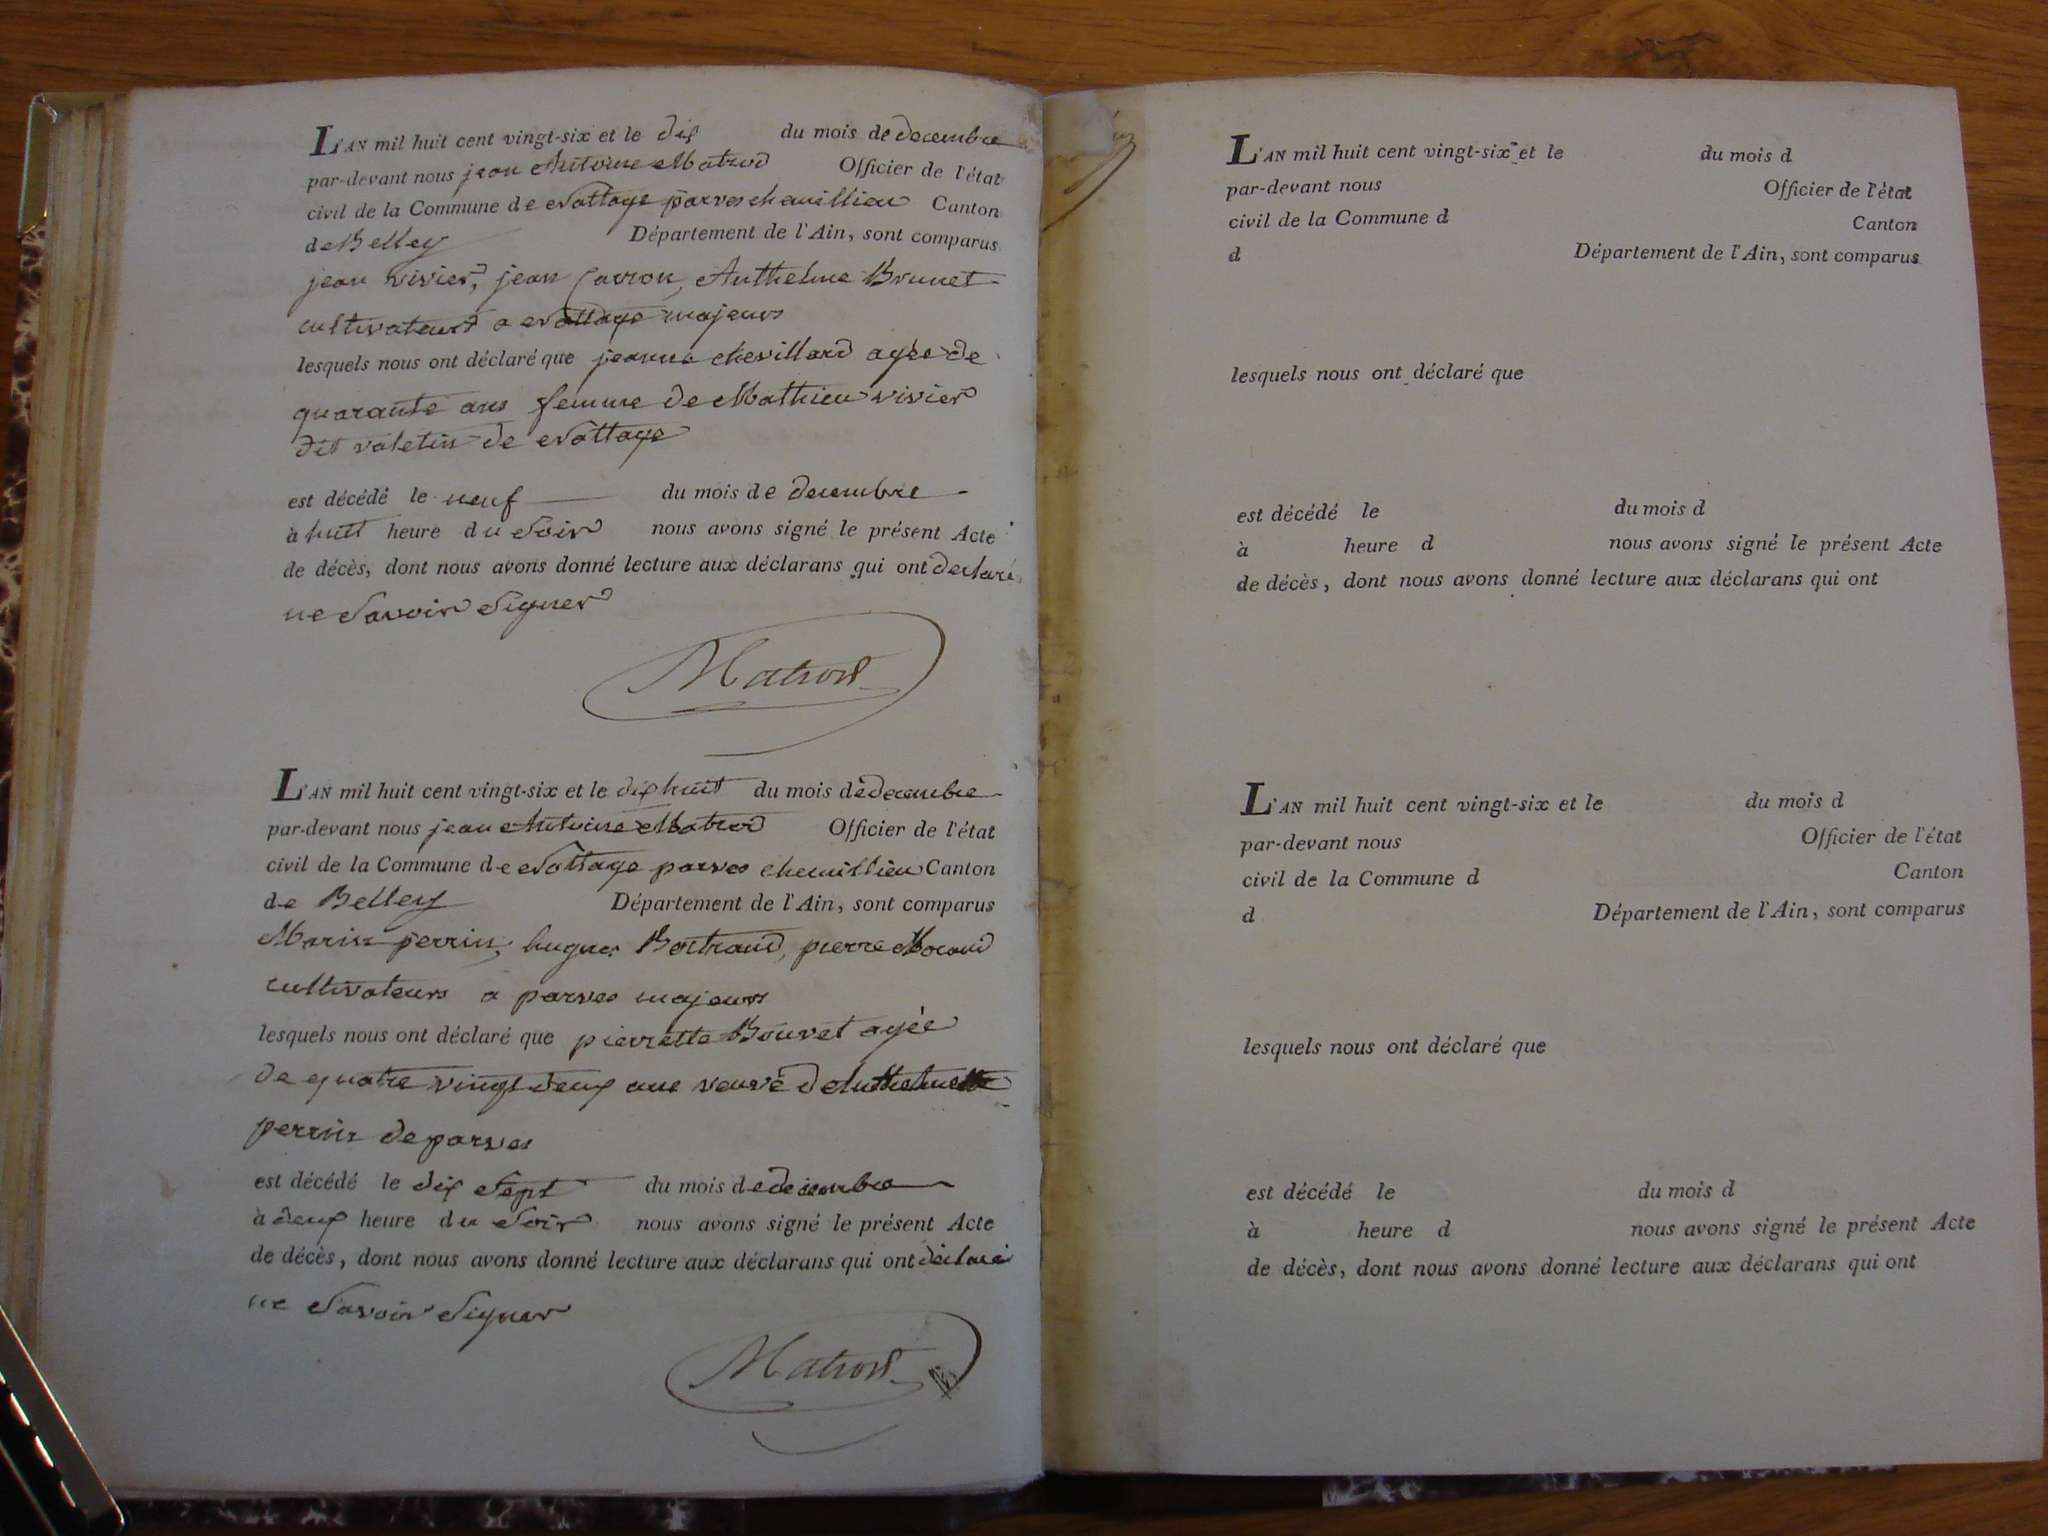 L'AN mil huit cent vingt-six et le dix du mois de decembre
par-devant nous jean Antoine Matrod Officier de l'état
civil de la Commune de evottage parves chemillieu Canton
de Belley Département de l'Ain, sont comparus
jean vivier, jean Carron, Anthelme Brunet
cultivateurs a evottage majeurs
lesquels nous ont déclaré que jeanne chevillard agée de
quarante ans femme de Mathieu vivier
dit valetin de evottage
est décédé le neuf du mois de decembre
à huit heure du Soir nous avons signé le présent Acte
de décès, dont nous avons donné lecture aux déclarans qui ont declaré
ne Savoir Signer
Matrod
L'AN mil huit cent vingt-six et le dix huit du mois de decembre
par-devant nous jean Antoine Matrod Officier de l'état
civil de la Commune de evottage parves chemillieu Canton
de Belley Département de l'Ain, sont comparus
Marin perrin, hugues Bertrand, pierre Morand
cultivateurs a parves majeurs
lesquels nous ont déclaré que pierrette Bouvet agée
de quatre vingt deux ans veuve d'Anthelme
perrin de parves
est décédé le dix Sept du mois de decembre
à deux heure du Soir nous avons signé le présent Acte
de décès, dont nous avons donné lecture aux déclarans qui ont déclaré
ne Savoir Signer
Matrod
L'AN mil huit cent vingt-six et le du mois d
par-devant nous Officier de l'état
civil de la Commune d Canton
d Département de l'Ain, sont comparus
lesquels nous ont déclaré que
est décédé le du mois d
à heure d nous avons signé le présent Acte
de décès, dont nous avons donné lecture aux déclarans qui ont
L'AN mil huit cent vingt-six et le du mois d
par-devant nous Officier de l'état
civil de la Commune d Canton
d Département de l'Ain, sont comparus
lesquels nous ont déclaré que
est décédé le du mois d
à heure d nous avons signé le présent Acte
de décès, dont nous avons donné lecture aux déclarans qui ont